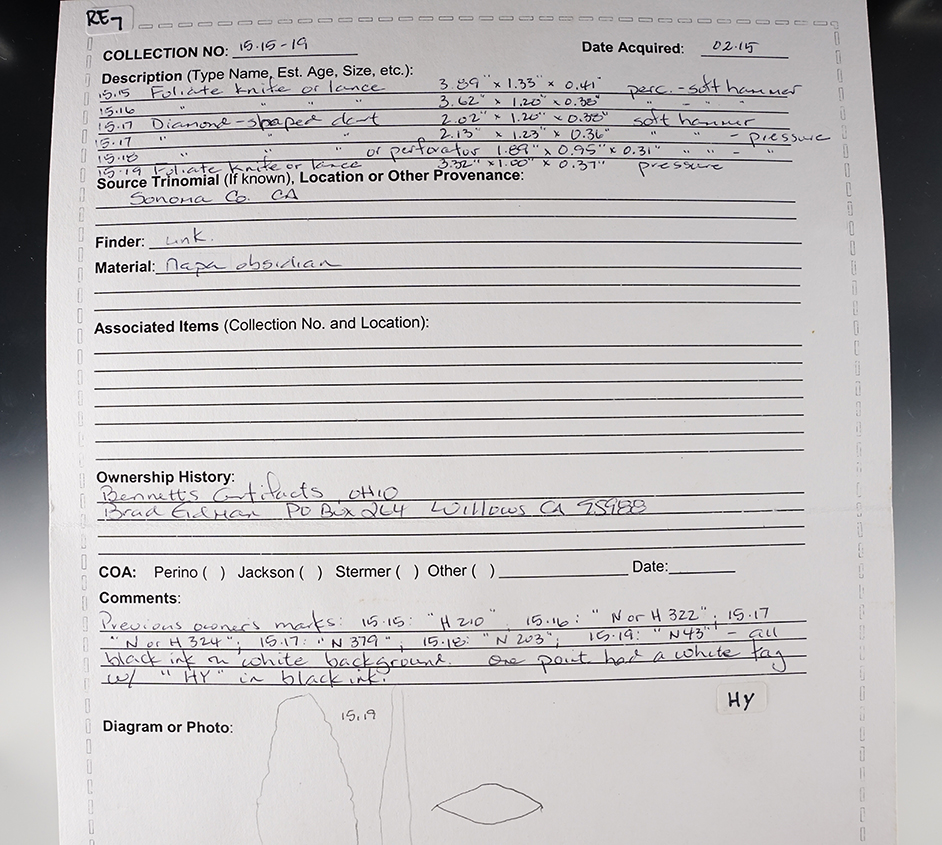 RE7
COLLECTION NO: 15.15-19 Date Acquired: 02.15
Description (Type Name, Est. Age, Size, etc.):
15.15 Foliate knife or lance 3.89" x 1.33" x 0.41" perc. - soft hammer
15.16 " " " " 3.62" x 1.20" x 0.38" " - " "
15.17 Diamond-shaped dart 2.02" x 1.20" x 0.38" soft hammer
15.17 " " " 2.13" x 1.23" x 0.36" " " - pressure
15.18 " " " or perforator 1.89" x 0.95" x 0.31" " " - "
15.19 Foliate knife or lance 3.32" x 1.00" x 0.37" pressure
Source Trinomial (If known), Location or Other Provenance:
Sonoma Co. CA
Finder: unk.
Material: Napa obsidian
Associated Items (Collection No. and Location):
Ownership History:
Bennett's Artifacts, OHIO
Brad Eidman PO Box 264 Willows CA 95988
COA: Perino ( ) Jackson ( ) Stermer ( ) Other ( ) Date:
Comments:
Previous owner's marks: 15.15: "H 210", 15.16: "N or H 322"; 15.17
"N or H 324"; 15.17: "N 379"; 15.18: "N 203"; 15.19: "N43" - all
black ink on white background. One point had a white tag
w/ "HY" in black ink.
HY
15.19
Diagram or Photo: